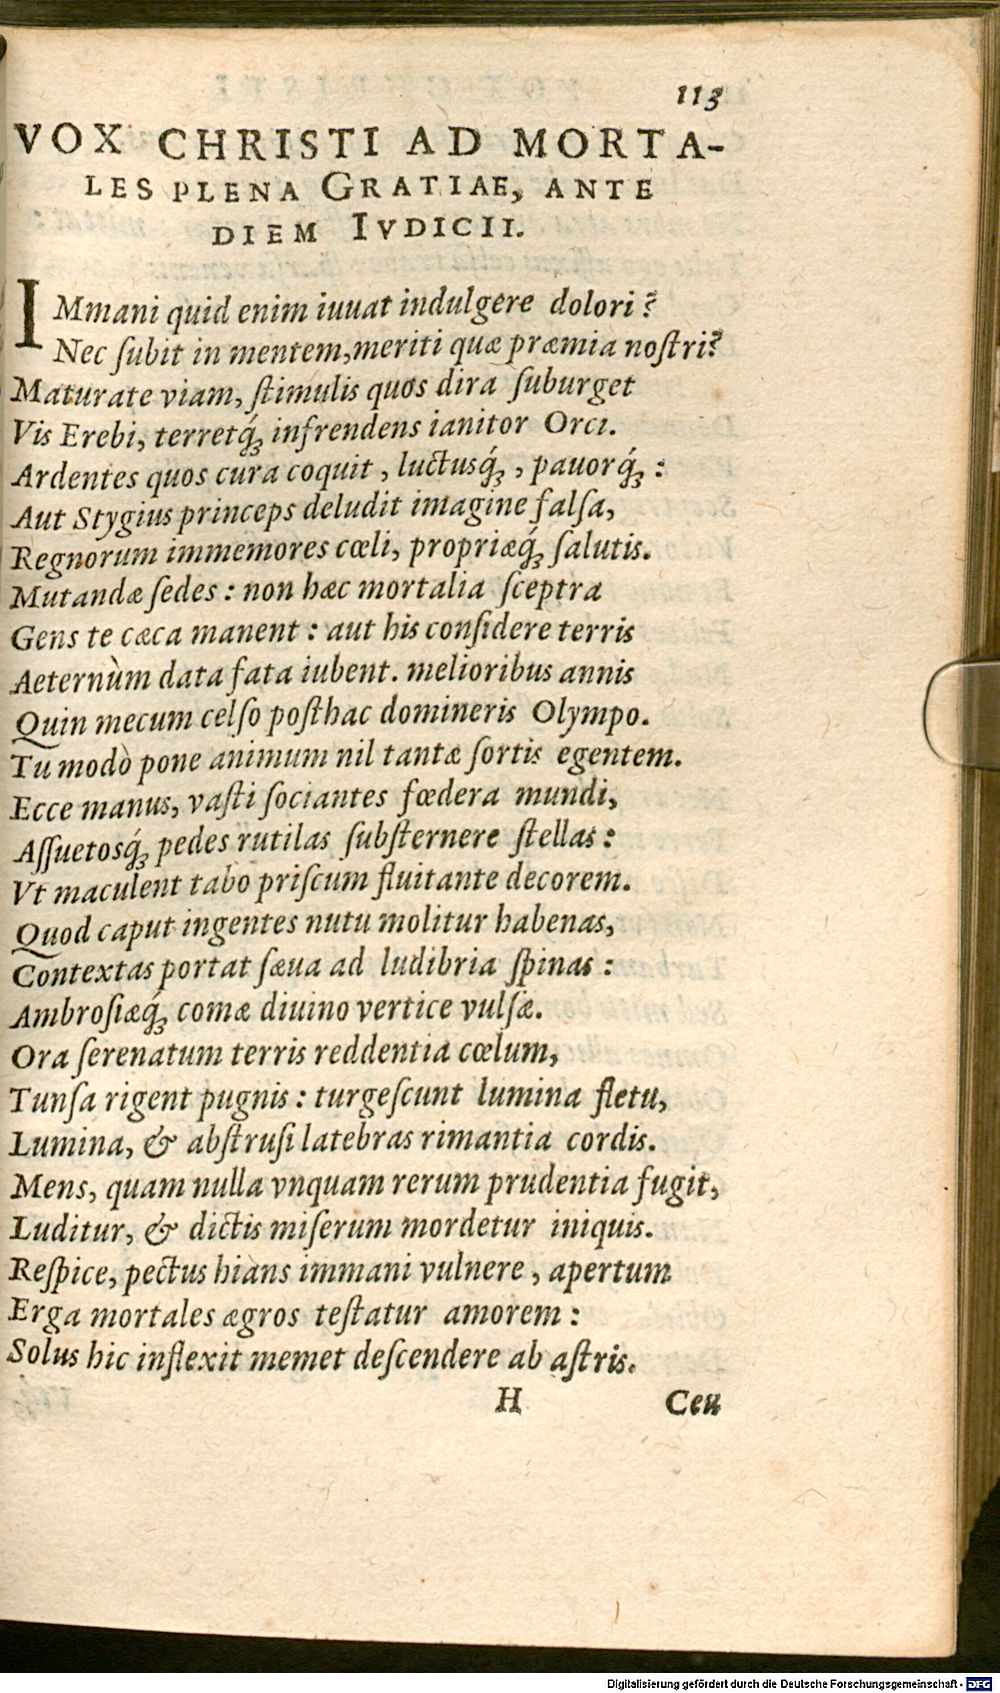 113
VOX CHRISTI AD MORTA-
LES PLENA GRATIAE, ANTE
DIEM IVDICII.
IMmani quid enim iuuat indulgere dolori?
Nec ſubit in mentem, meriti quæ præmia noſtri?
Maturate viam, ſtimulis quos dira ſuburget
Vis Erebi, terretq́ꝫ infrendens ianitor Orci.
Ardentes quos cura coquit, luctusq́ꝫ, pauorq́ꝫ:
Aut Stygius princeps deludit imagine falſa,
Regnorum immemores cœli, propriæq́ꝫ ſalutis.
Mutandæ ſedes: non hæc mortalia ſceptra
Gens te cæca manent: aut his conſidere terris
Aeternùm data fata iubent. melioribus annis
Quin mecum celſo poſthac domineris Olympo.
Tu modò pone animum nil tantæ ſortis egentem.
Ecce manus, vaſti ſociantes fœdera mundi,
Aſſuetosq́ꝫ pedes rutilas ſubſternere ſtellas:
Vt maculent tabo priſcum fluitante decorem.
Quod caput ingentes nutu molitur habenas,
Contextas portat ſæua ad ludibria ſpinas:
Ambroſiæq́ꝫ comæ diuino vertice vulſæ.
Ora ſerenatum terris reddentia cœlum,
Tunſa rigent pugnis: turgeſcunt lumina fletu,
Lumina, & abſtruſi latebras rimantia cordis.
Mens, quam nulla vnquam rerum prudentia fugit,
Luditur, & dictis miſerum mordetur iniquis.
Reſpice, pectus hians immani vulnere, apertum
Erga mortales ægros teſtatur amorem:
Solus hic inflexit memet deſcendere ab aſtris.
H Ceu
Digitalisierung gefördert durch die Deutsche Forschungsgemeinschaft - DFG